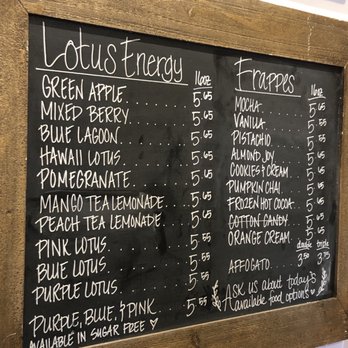 Lotus Energy 16oz
GREEN APPLE 5 65
MIXED BERRY 5 65
BLUE LAGOON 5 65
HAWAII LOTUS 5 65
POMEGRANATE 5 65
MANGO TEA LEMONADE 5 65
PEACH TEA LEMONADE 5 65
PINK LOTUS 5 55
BLUE LOTUS 5 55
PURPLE LOTUS 5 55
PURPLE, BLUE, & PINK 5 55
AVAILABLE IN SUGAR FREE ♡
Frappes 16oz
MOCHA 5 65
VANILLA 5 65
PISTACHIO 5 65
ALMOND JOY 5 65
COOKIES & CREAM 5 65
PUMPKIN CHAI 5 65
FROZEN HOT COCOA 5 65
COTTON CANDY 5 55
ORANGE CREAM 5 55
double triple
AFFOGATO 3 50 3 75
ASK us about today's
available food options